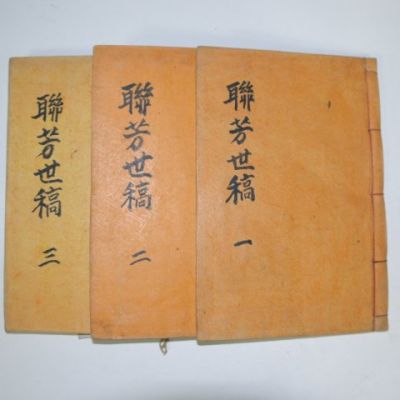 聯芳世稿 一
聯芳世稿 二
聯芳世稿 三